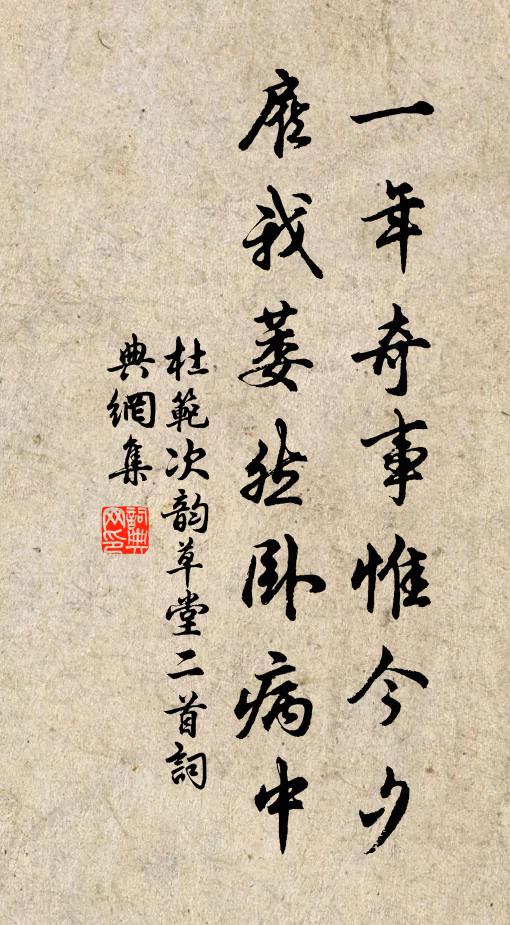 一年奇事惟今夕
屬我萎然卧病中
杜範次韵草堂二首詞
典網集
詞典网印